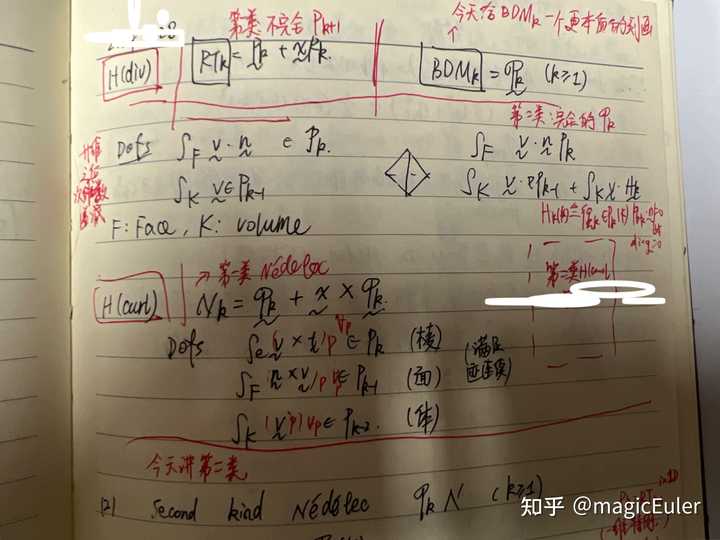 第一类 不完全 P_{k+1}
今天给BDM_k 一个更本质的刻画
H(div)
RT_k = P_k + x P_k.
BDM_k = P_k (k≥1)
第二类:完全的 P_k
Dofs ∫_F v·n ∈ P_k.
∫_F v·n P_k
∫_K v∈P_{k-1}
F: Face, K: volume
div=0
H(curl)
第一类 Nédélec
第二类H(curl)
N_k = P_k + x × P_k
Dofs ∫_e v × t / p ∀p ∈ P_k (棱)
∫_F n × v / p ∈ P_{k-1} (面)
(满足
迹连续)
∫_K (v p) ∀p ∈ P_{k-2}. (体)
今天讲第二类
(2) Second kind Nédélec P_k N (k≥1)
知乎 @magicEuler